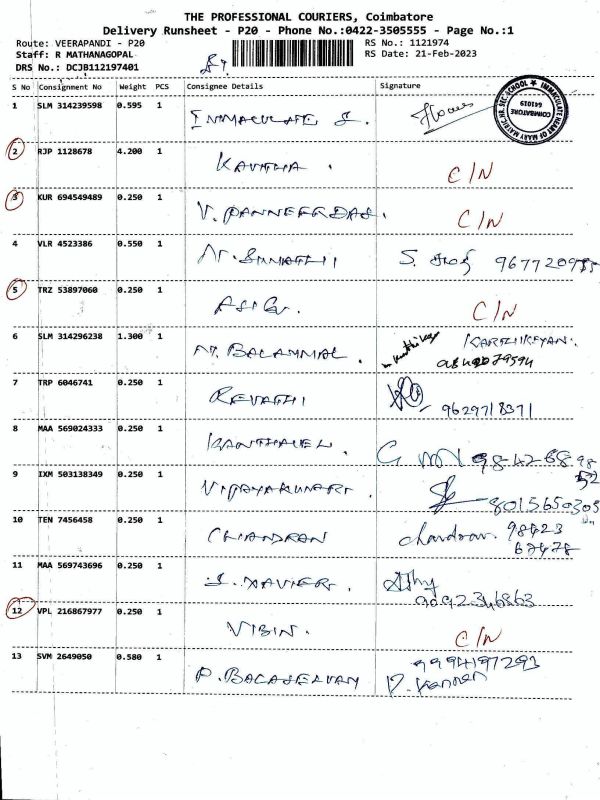 THE PROFESSIONAL COURIERS, Coimbatore
Delivery Runsheet - P20 - Phone No.:0422-3505555 - Page No.:1
Route: VEERAPANDI - P20 RS No.: 1121974
Staff: R MATHANAGOPAL RS Date: 21-Feb-2023
DRS No.: DCJB112197401
S No Consignment No Weight PCS Consignee Details Signature
1 SLM 314239598 0.595 1 IMMACULATE
IMMACULATE HEART OF MARY MATRIC. HR. SEC. SCHOOL ★ COIMBATORE 641019
2 RJP 1128678 4.200 1 KAVITHA . C/N
3 KUR 694549489 0.250 1 V. PANNEERDAS. C/N
4 VLR 4523386 0.550 1 N. SUMATHI S.
5 TRZ 53897060 0.250 1 C/N
6 SLM 314296238 1.300 1 M. BALAMMAL. KARTHIKEYAN.
7 TRP 6046741 0.250 1 REVATHI 9629718371
8 MAA 569024333 0.250 1 KANTHAVEL.
9 IXM 503138349 0.250 1 VIJAYAKUMARI. 8015650305
10 TEN 7456458 0.250 1 CHANDRAN chandran. 98423
67478
11 MAA 569743696 0.250 1 S. XAVIER.
12 VPL 216867977 0.250 1 VIBIN. C/N
13 SVM 2649050 0.580 1 P. BALASELVAM 9994197293
P. Kannan